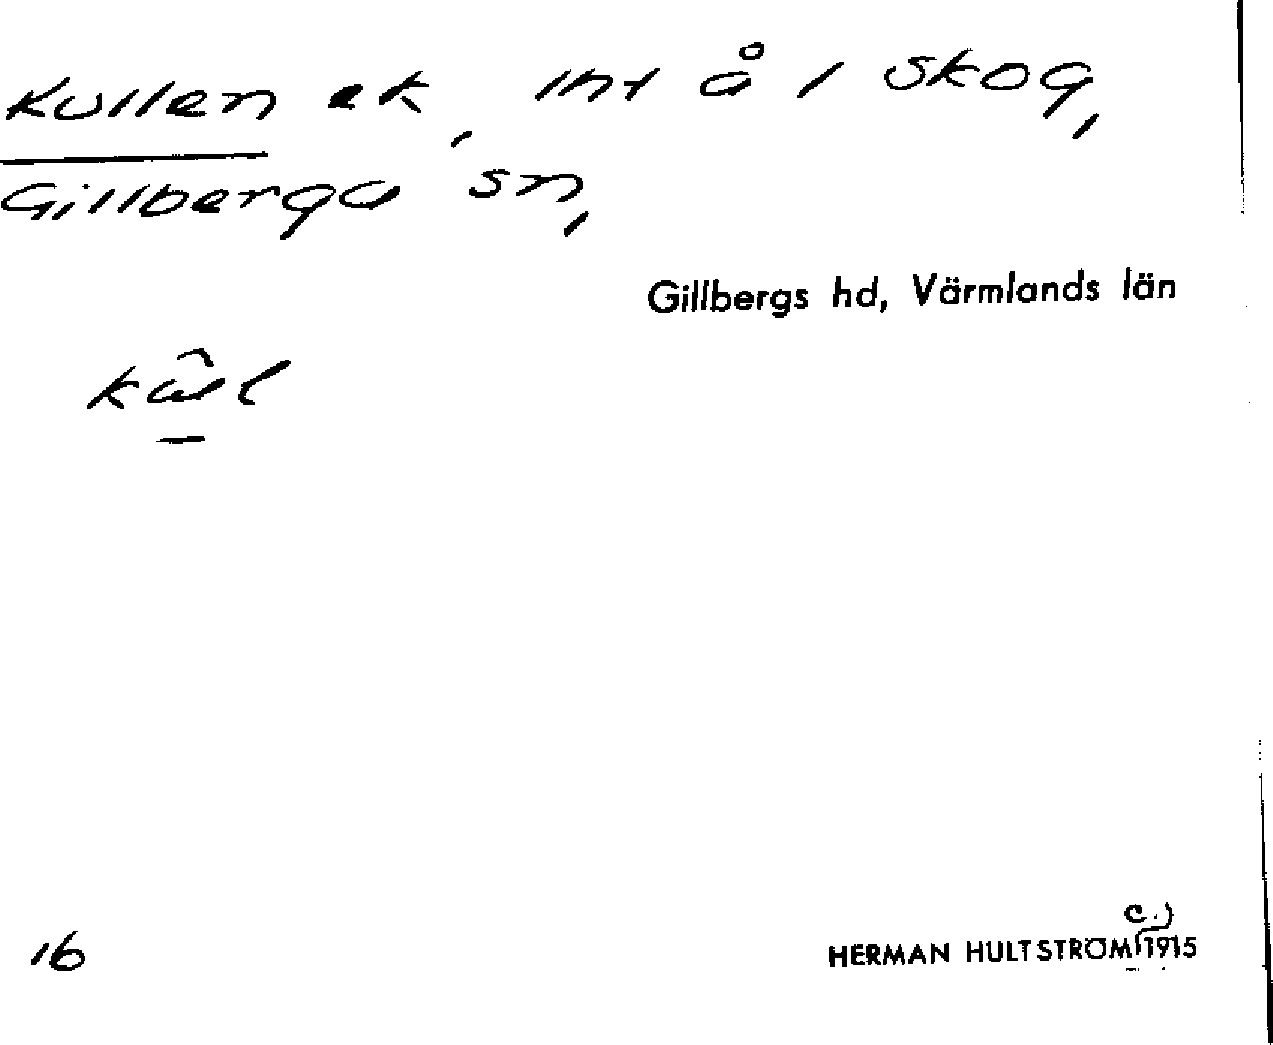 Kullen ek, int å / skog,
Gillberga sn,
Gillbergs hd, Värmlands län
16
HERMAN HULTSTRÖM (c.) 1915